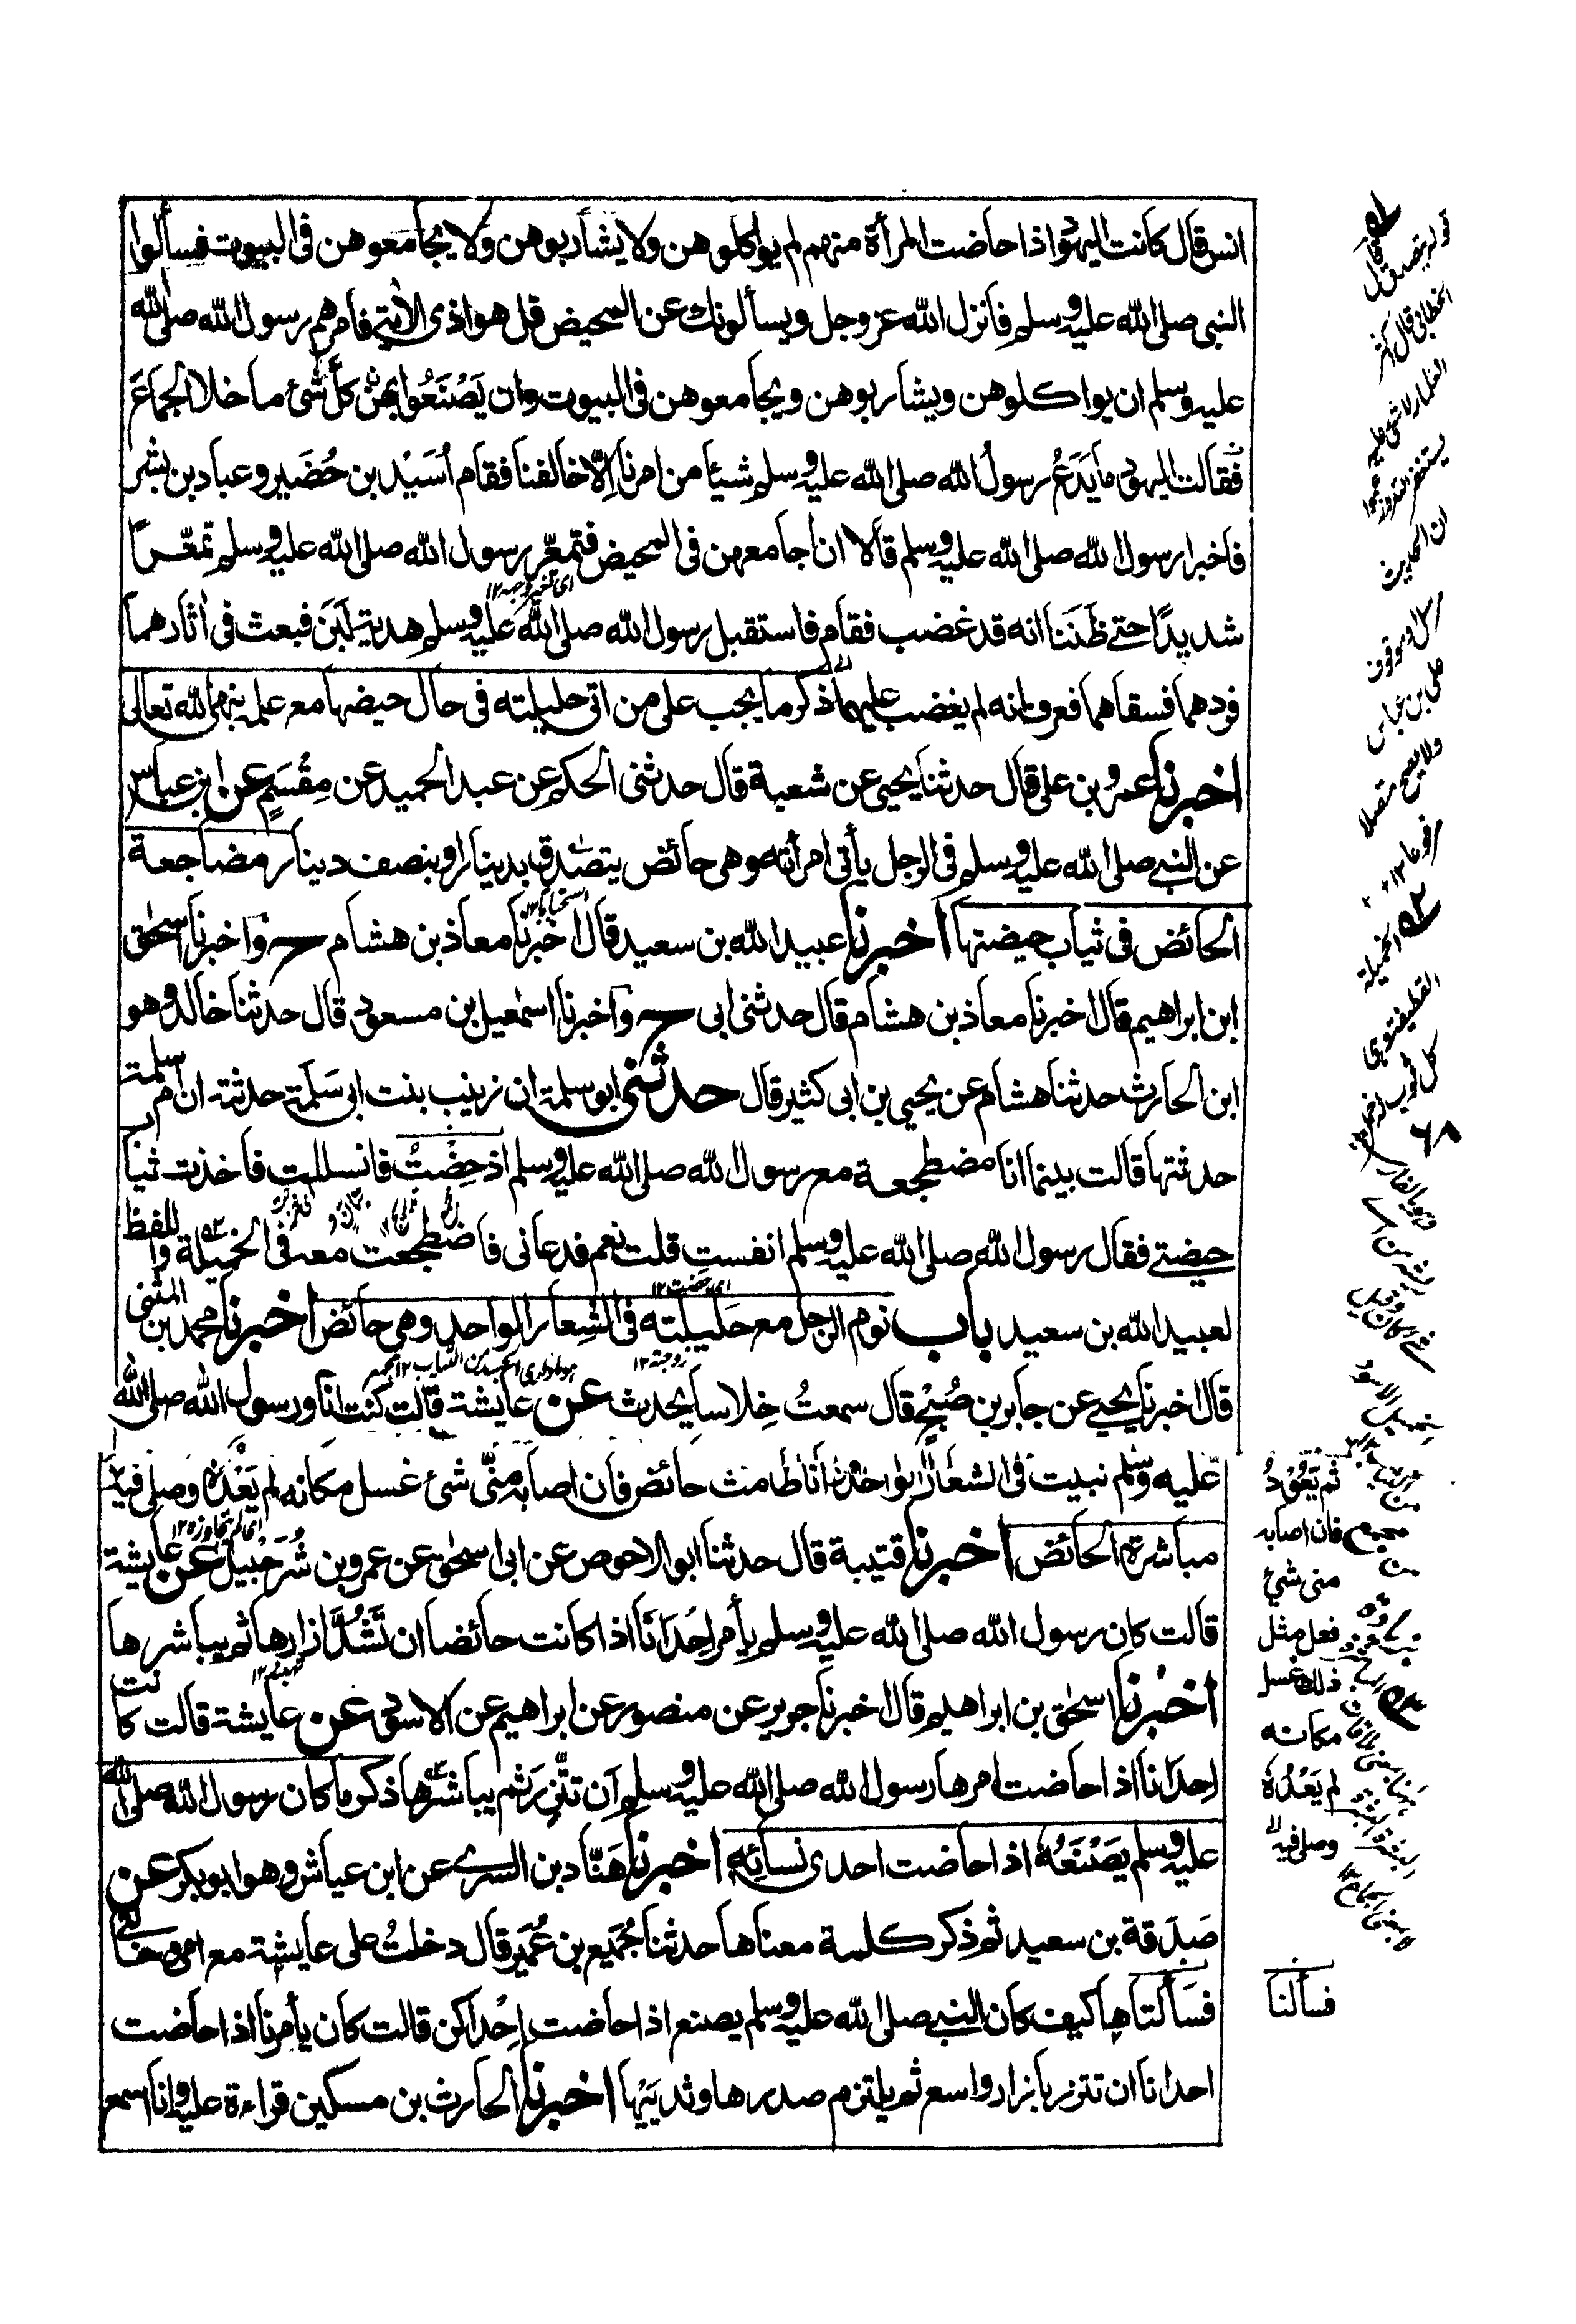 انس قال كانت اليهود اذا حاضت المرأة منهم لم يواكلوهن ولا يشاربوهن ولا يجامعوهن فى البيوت فسألوا
النبى صلى الله عليه وسلم فانزل الله عز وجل ويسألونك عن المحيض قل هو اذى الاية فامرهم رسول الله صلى الله
عليه وسلم ان يواكلوهن ويشاربوهن ويجامعوهن فى البيوت وان يَصْنَعُوا بِهِنَّ كُلَّ شئ ما خلا الجماعَ
فقالت اليهود ما يَدَعُ رسولُ الله صلى الله عليه وسلم شيئا من امرنا اِلَّا خالفنا فقام اُسَيْد بن حُضَير وعباد بن بشر
فاخبرا رسول الله صلى الله عليه وسلم قالا انجامعهن فى المحيض فتمعّر رسول الله صلى الله عليه وسلم تمعّرًا
اى تغير وجهه ١٢
شديدًا حتے ظَنَنا انه قد غضب فقام فاستقبل رسول الله صلى الله عليه وسلم هدية لَبَن فبعث فى اٰثارهما
فردهما فسقاهما فعرف انه لم يغضب عليهما ذكر ما يجب على من اتى حليلته فى حال حيضها مع علمه بنهى الله تعالى
اخبرنا عمرو بن على قال حدثنا يحيى عن شعبة قال حدثنى الحكم عن عبد الحميد عن مِقْسَمٍ عن ابن عباس
عن النبے صلى الله عليه وسلم فى الرجل يأتى امرأته وهى حائض يتصدق بدينار او بنصف دينار مضاجعة
استحبابا ١٢
الحائض فى ثياب حيضتها اخبرنا عبيد الله بن سعيد قال اخبرنا معاذ بن هشام ح واخبرنا اسحٰق
ابن ابراهيم قال اخبرنا معاذ بن هشام قال حدثنى ابى ح واخبرنا اسمٰعيل بن مسعود قال حدثنا خالد وهو
ابن الحارث حدثنا هشام عن يحيى بن ابى كثير قال حدثنى ابو سلمة ان زينب بنت ابى سَلَمَة حدثته ان ام سلمة
حدثتها قالت بينما انا مضطجعة مع رسول الله صلى الله عليه وسلم اذ حِضْتُ فانسللت فاخذت ثياب
حيضتے فقال رسول الله صلى الله عليه وسلم انفستِ قلت نعم فدعانى فاضطجعت معه فى الخميلة واللفظ
اى حضت ١٢
لعبيد الله بن سعيد باب نوم الرجل مع حَليلته فى الشعار الواحد وهى حائض اخبرنا محمد بن المثنى
زوجته ١٢
قال اخبرنا يحيے عن جابر بن صُبْح قال سمعتُ خِلاسا يحدث عن عايشة قالت كنت انا ورسول الله صلى الله
عليه وسلم نبيت فى الشعار الواحد وانا طامث حائض فان اصابه منّى شئ غسل مكانه لم يَعْدُه وصلى فيه
اى لم يتجاوزه ١٢
مباشرة الحائض اخبرنا قتيبة قال حدثنا ابو الاحوص عن ابى اسحٰق عن عمرو بن شُرَحْبيل عن عايشة
قالت كان رسول الله صلى الله عليه وسلم يأمر اِحْدَانَا اذا كانت حائضا ان تَشُدَّ ازارها ثم يباشرها
اخبرنا اسحٰق بن ابراهيم قال اخبرنا جرير عن منصور عن ابراهيم عن الاسود عن عايشة قالت كانت
احدانا اذا حاضت امرها رسول الله صلى الله عليه وسلم ان تتّزر ثم يباشرها ذكر ما كان رسول الله صلى الله
عليه وسلم يَصْنَعُهٗ اذا حاضت احدى نسائه اخبرنا هَنّاد بن السرے عن ابن عياش وهو ابو بكر عن
صَدَقة بن سعيد ثم ذكر كلمة معناها حدثنا جُمَيع بن عُمَير قال دخلتُ على عايشة مع امى وخالتى
فسَألَتاها كيف كان النبے صلى الله عليه وسلم يصنع اذا حاضت اِحْداكن قالت كان يأمرنا اذا حاضت
احدانا ان تتزر بازار واسع ثم يلتزم صدرها وثدييها اخبرنا الحارث بن مسكين قراءة عليه وانا اسمع
قوله يتصدق قال
الخطابى قال اكثر
العلماء لا شئ عليه
يستغفر الله وزعموا
ان الحديث
مرسل او موقوف
على ابن عباس
ولا يصح متصلا
مرفوعا ١٢
الخميلة
القطيفة وهى
كل ثوب له خمل
٦٨
ثم يَعُوْدُ
فان اصابه
منى شئ
فعل مثل
ذلك غسل
مكانه
لم يَعْدُهُ
وصلى فيه
فسألنا